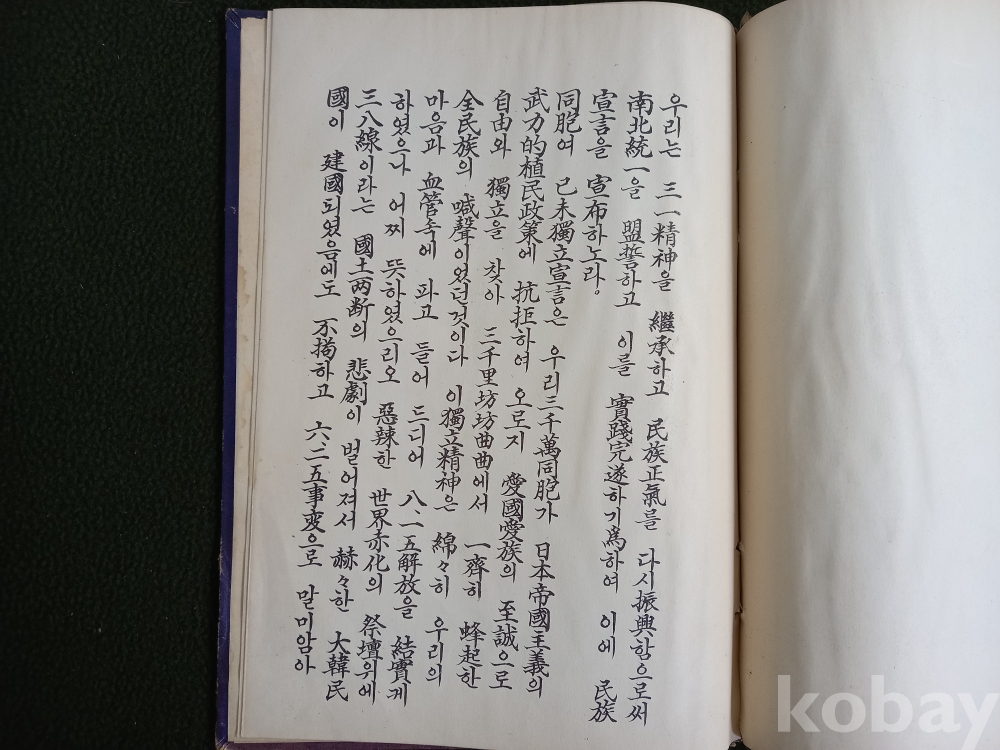 우리는 三一精神을 繼承하고 民族正氣를 다시振興함으로써
南北統一을 盟誓하고 이를 實踐完遂하기爲하여 이에 民族
宣言을 宣布하노라。
同胞여 己未獨立宣言은 우리三千萬同胞가 日本帝國主義의
武力的植民政策에 抗拒하여 오로지 愛國愛族의 至誠으로
自由와 獨立을 찾아 三千里坊坊曲曲에서 一齊히 蜂起한
全民族의 喊聲이었던것이다 이獨立精神은 綿々히 우리의
마음과 血管속에 파고 들어 드디어 八.一五解放을 結實케
하였으나 어찌 뜻하였으리오 惡辣한 世界赤化의 祭壇위에
三八線이라는 國土兩断의 悲劇이 벌어져서 赫々한 大韓民
國이 建國되였음에도 不拘하고 六.二五事変으로 말미암아
kobay